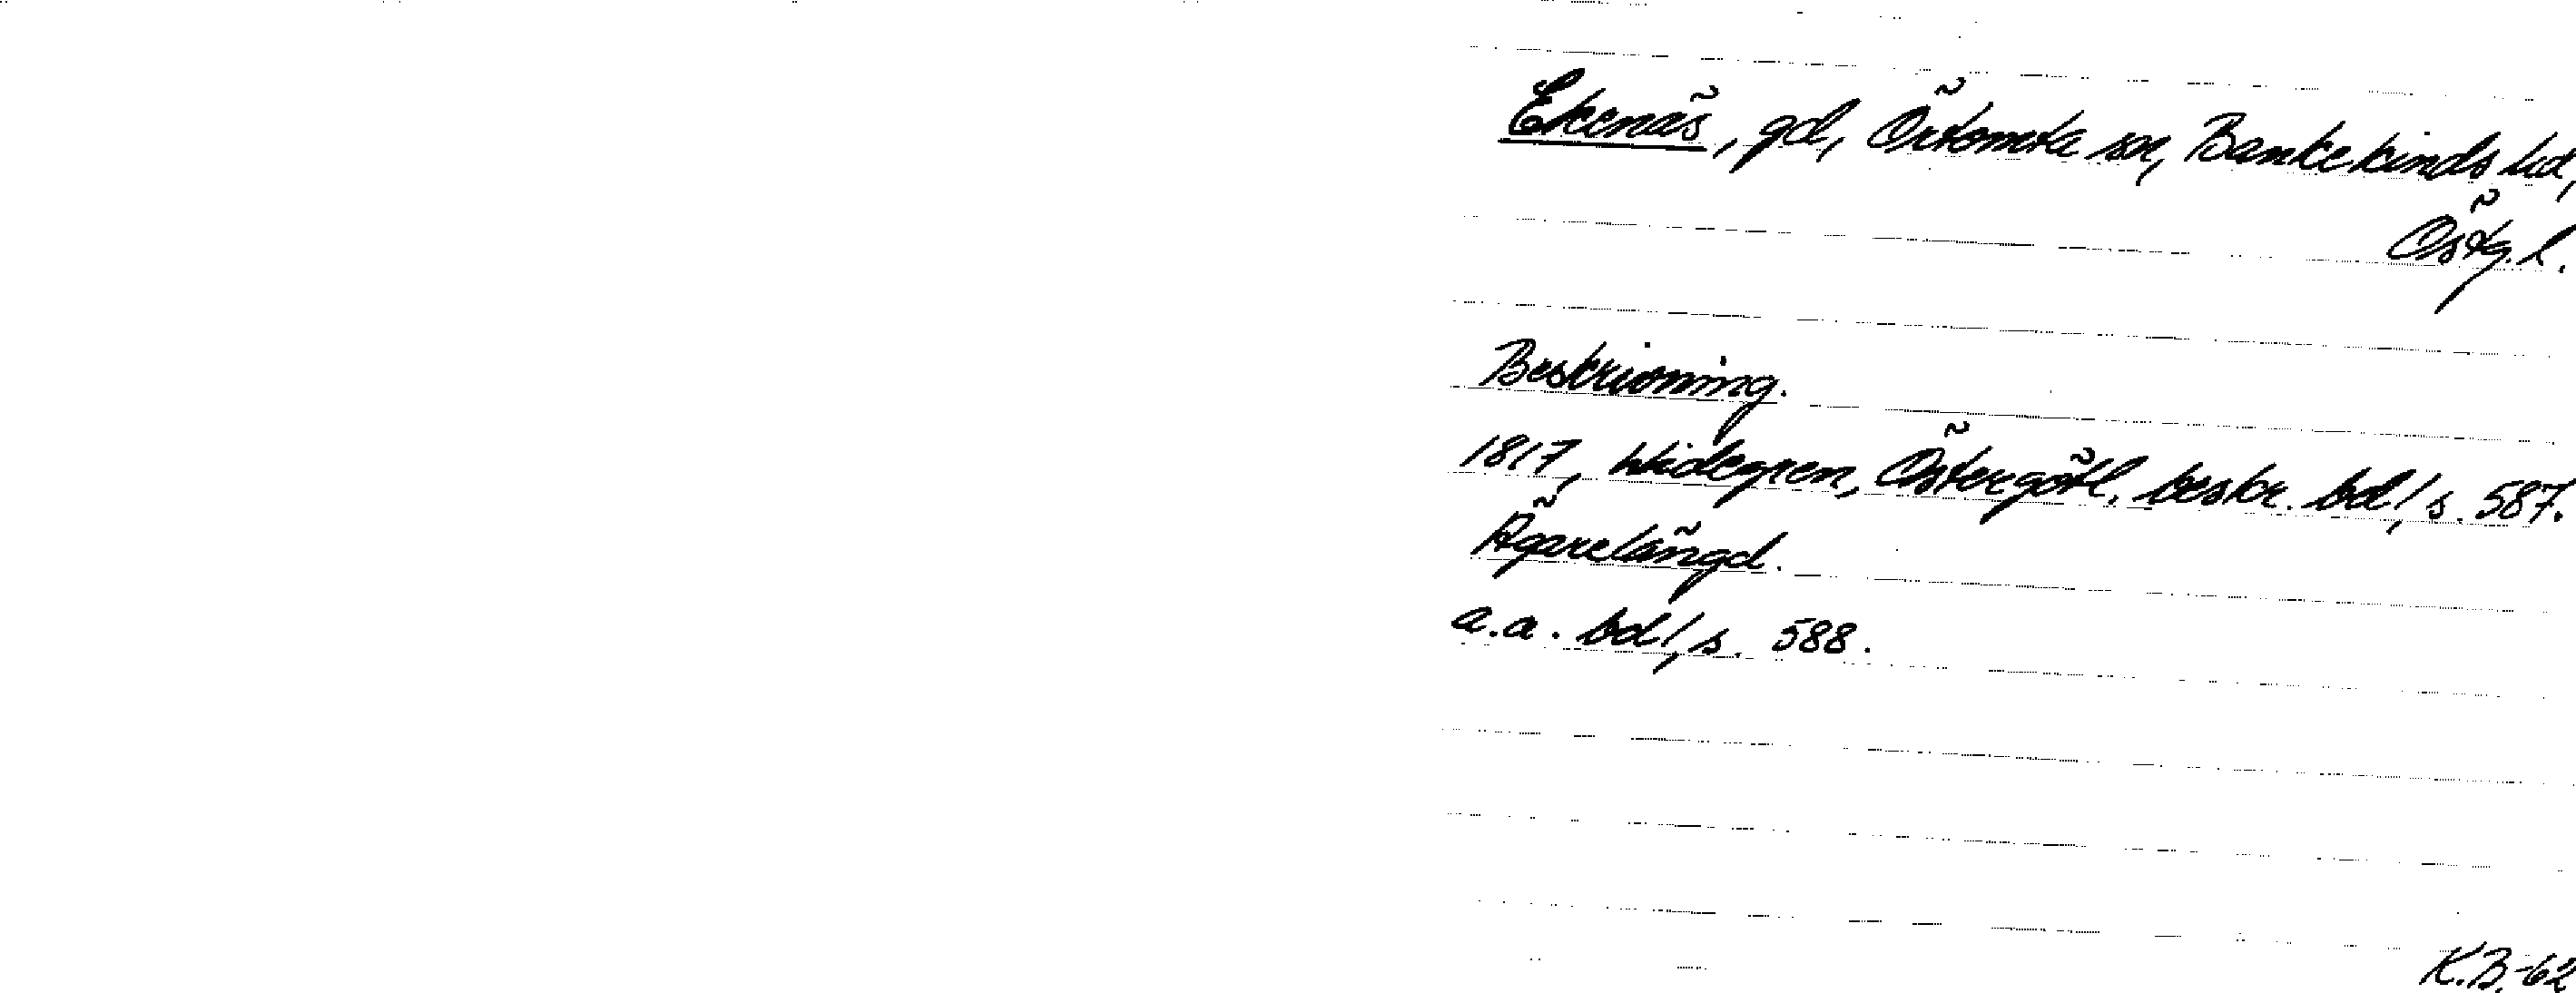 Ekenäs, gd, Örtomta sn, Bankekinds hd,
Östg. l.
Beskrivning.
1817, Widegren, Östergötl. beskr. bd 1, s. 587.
Ägarelängd.
a.a. bd 1, s. 588.
K.B.-62